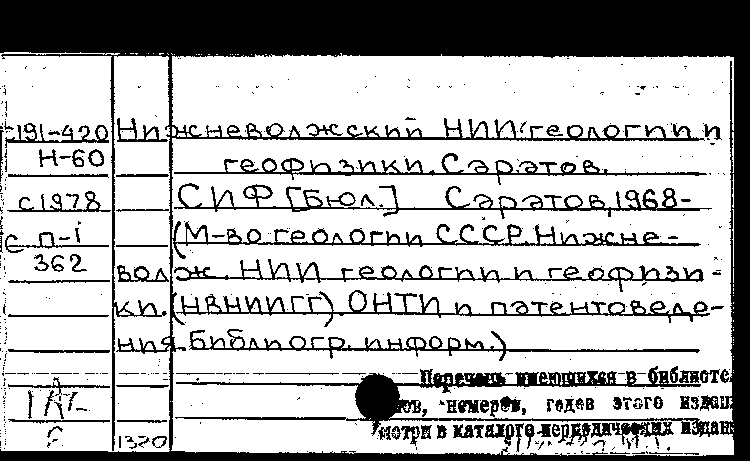 с191-420 Нижневолжский НИИ геологии и
Н-60 геофизики. Саратов.
с1978 СИФ [Бюл.] Саратов, 1968-
с п-i (М-во геологии СССР. Нижне-
362 волж. НИИ геологии и геофизи-
ки. (НВНИИГГ). ОНТИ и патентоведе-
ния. Библиогр. информ.)
Перечень имеющихся в библиотеке
номеров, годов этого издан
смотри в каталоге периодических издан
1320